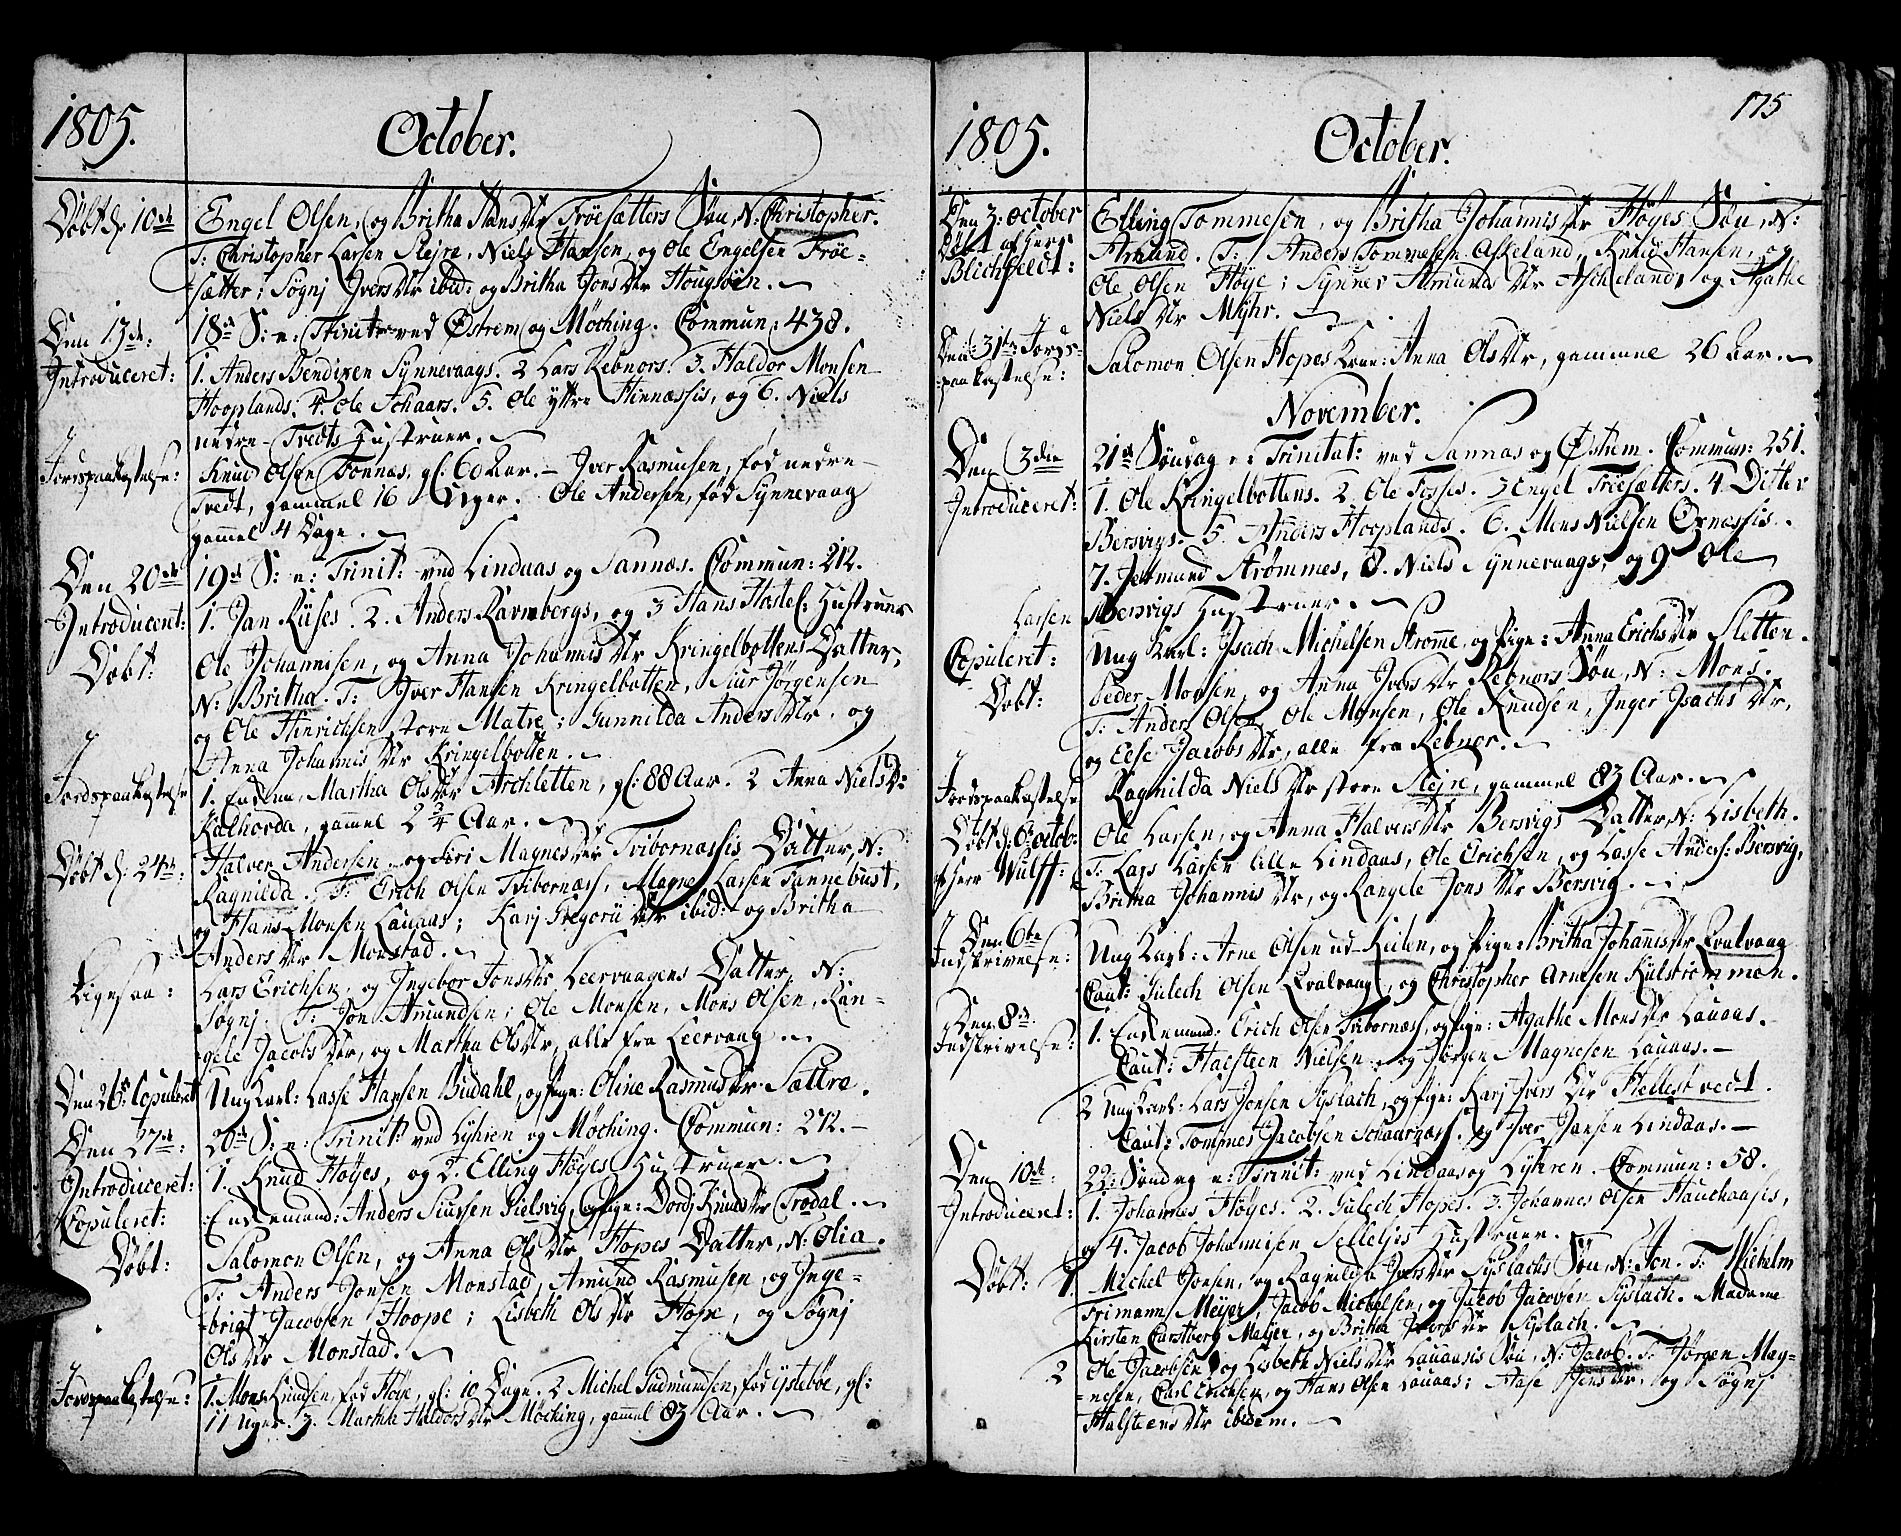 1805.
October.
Döbt d: 10de
Engel Olsen, og Britha Hans Dtr Tröesætters Sön, N: Christopher.
T: Christopher Larsen Slejre, Niels Hansen, og Ole Engelsen Tröe-
sætter; Sögnj Ivers Dtr ibid: og Britha Jons Dtr Hougsöen.
Den 13de:
18de S: e: Trinit: ved Östrem og Möching. Commun: 438.
Introduceret:
1. Anders Bendixen Synnevaags. 2 Lars Rebnors. 3. Haldor Monsen
Hooplands. 4. Ole Schaars. 5. Ole yttre Hinnæssis, og 6. Niels
nedre-Tvedts Hustruer.
Jordspaakastelse:
Knud Olsen Fonnæs, gl: 60 Aar. - Iver Rasmusen, fød nedre-
Tvedt, gammel 16 Uger. Ole Andersen, fød Synnevaag
gammel 4 Dage.
Den 20de
19de S: e: Trinit: ved Lindaas og Sannæs. Commun: 212.
Introduceret:
1. Jan Riises. 2. Anders Ravnbergs, og 3 Hans Hostel: Hustruer
Döbt:
Ole Johannisen, og Anna Johannis Dtr Kringelbottens Datter,
N: Britha. T: Iver Hansen Kringelbotten, Siur Jörgensen
og Ole Hinrichsen store Matre; Gunnilda Anders Dtr, og
Anna Johannis Dtr Kringelbotten.
Jordspaakastelse
1. Enkene, Martha Ols Dtr Archletten, gl: 88 Aar. 2 Anna Niels D:
Kalhorda, gammel 2 3/4 Aar.
Döbt d: 24de:
Halver Andersen og Siri Magnes Dtr Tvibornæssis Datter, N:
Ragnilda. T: Erich Olsen Tvibornæss, Magne Larsen Tannebust,
og Hans Monsen Lauaas; Karj Gregorii Dtr ibid: og Britha
Anders Dtr Monstad.
Ligesaa:
Lars Erichsen, og Ingebor Jons Dtr Leervaagens Datter, N:
Sögnj. T: Jon Amundsen, Ole Monsen, Mons Olsen, Ran-
gele Jacobs Dtr, og Martha Ols Dtr, alle fra Leervaag.
Den 26de: Copuleret
Ung Karl: Lasse Hansen Bildahl, og Pige: Oline Rasmus Dtr Sættre.
Den 27de:
20de S: e: Trinit: ved Lyhren og Möching. Commun: 272.
Introduceret:
1. Knud Höyes, og 2. Elling Höyes Hustruer.
Copuleret:
Enkemand: Anders Siursen Gielsvig, og Pige: Dordj Knuds Dtr Trodal.
Döbt:
Salomon Olsen, og Anna Ols Dtr Hopes Datter, N: Olia.
T: Anders Jonsen Monstad, Amund Rasmusen, og Inge-
brigt Jacobsen Hoope; Lisbeth Ols Dtr Hope, og Sögnj
Ols Dtr Monstad.
Jordspaakastelse:
1. Mons Knudsen, fød Höye, gl: 10 Dage. 2 Michel Gudmundsen, fød ystebøe, gl:
11 Uger. 3. Martha Haldors Dtr Möching, gammel 83 Aar.
175
1805.
October.
Den 3: October
Elling Tommesen, og Britha Johannis Dtr Höyes Sön, N:
Döbt af Herr
Blichfeldt:
Amund. T: Anders Tommesen Askeland, Knud Hansen, og
Ole Olsen Höye; Synnev Amunds Dtr Ascheland, og Agathe
Niels Dtr Myhr.
Den 31te: Jords-
paakastelse:
Salomon Olsen Hopes Kone: Anna Ols Dtr, gammel 26 Aar.
November.
Den 3die
21de Söndag e: Trinitat: ved Sannæs og Östrem. Commun: 251.
Introduceret:
1. Ole Kringelbottens. 2. Ole Fosses. 3 Engel Tröesætters. 4. Ditlev
Bersvigs. 5. Anders Hooplands. 6. Mons Nielsen Exnæssis.
7. Jermund Strömmes, 8. Niels Synnevaags, og 9 Ole
Larsen
Bersvigs Hustruer.
Copuleret:
Ung Karl: Isach Michelsen Strömme, og Pige: Anna Erichs Dtr Sletten.
Döbt:
Peder Monsen, og Anna Ivers Dtr Rebnors Sön, N: Mons.
T: Anders Olsen, Ole Monsen, Ole Knudsen, Inger Isachs Dtr,
og Else Jacobs Dtr, alle fra Rebnor.
Jordspaakastelse
Ragnilda Niels Dtr store Slejre, gammel 83 Aar.
Döbt d: 6: octob:
af Herr Wulff:
Ole Larsen, og Anna Halvers Dtr Bersvigs Datter, N: Lisbeth.
T: Lars Larsen lille Lindaas, Ole Erichsen, og Lasse Anders: Bersvig,
Britha Johannis Dtr, og Rangele Jons Dtr Bersvig.
Den 6te
Indskrivelse:
Ung Karl: Arne Olsen ud Keilen, og Pige: Britha Johannis Dtr Qvalvaag
Caut: Gulech Olsen Qvalvaag, og Christopher Arnesen Kulströmmen.
Den 8de:
Indskrivelse:
1. Enkemand: Erich Olsen Tvibornæss, og Pige: Agathe Mons Dtr Lauaas.
Caut: Halsteen Nielsen, og Jörgen Magnesen Lauaas.
2 Ung Karl: Lars Jonsen Syslach, og Pige: Karj Ivers Dtr Hellestvedt.
Caut: Tommes Jacobsen Schaarnæss, og Iver Jansen Lindaas.
Den 10de:
22: Söndag e: Trinit: ved Lindaas og Lyhren. Commun: 58.
Introduceret:
1. Johannes Höyes. 2. Gulech Hopes. 3. Johannes Olsen Hauchaases,
og 4. Jacob Johannisen Sellelsis Hustruer.
Döbt: 1
Michel Jonsen, og Ragnilda Ivers Dtr Syslachs Sön, N: Jon. T: Wilhelm
Frimann Meyer, Jacob Michelsen, og Jacob Jacobsen Syslach. Madame
Kirsten Carstberg Meyer, og Britha Ivers Dtr Syslach.
2
Ole Jacobsen, og Lisbeth Niels Dtr Lauaasis Sön, N: Jacob. T: Jörgen Mag-
nesen, Carl Erichsen, og Hans Olsen Lauaas; Aase Jens Dtr, og Sögnj
Halsteens Dtr ibidem.